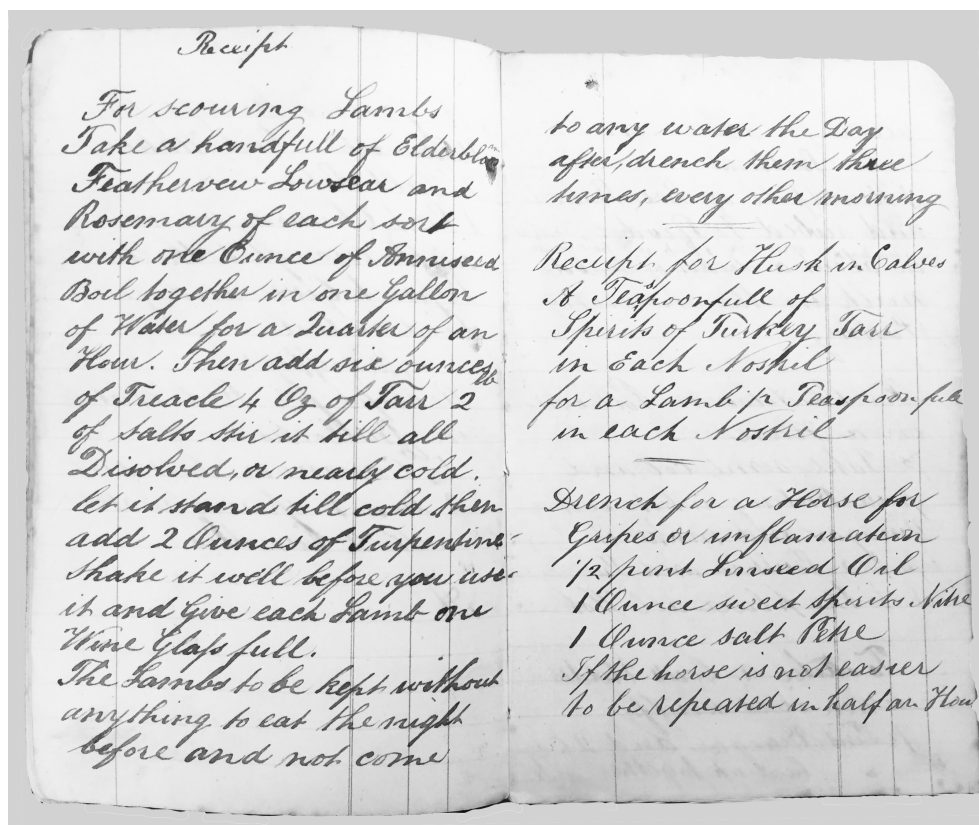 Receipt
For scouring Lambs
Take a handfull of Elderblom
Feathervew Lowsear and
Rosemary of each sort
with one Ounce of Anniseed
Boil together in one Gallon
of Water for a Quarter of an
Hour. Then add six ounces
of Treacle 4 Oz of Tarr 2 lb
of salts stir it till all
Disolved, or nearly cold.
let it stand till cold then
add 2 Ounces of Turpentine
shake it well before you use
it and Give each Lamb one
Wine Glass full.
The Lambs to be kept without
anything to eat the night
before and not come
to any water the Day
after, drench them three
times, every other morning
Receipt for Husk in Calves
A Teaspoonfull of
Spirits of Turkey Tarr
in Each Nostril
for a Lamb 1/2 Teaspoonfull
in each Nostril
Drench for a Horse for
Gripes or imflamation
1/2 pint Linseed Oil
1 Ounce sweet spirits Nitre
1 Ounce salt Petre
If the horse is not easier
to be repeated in half an Hour